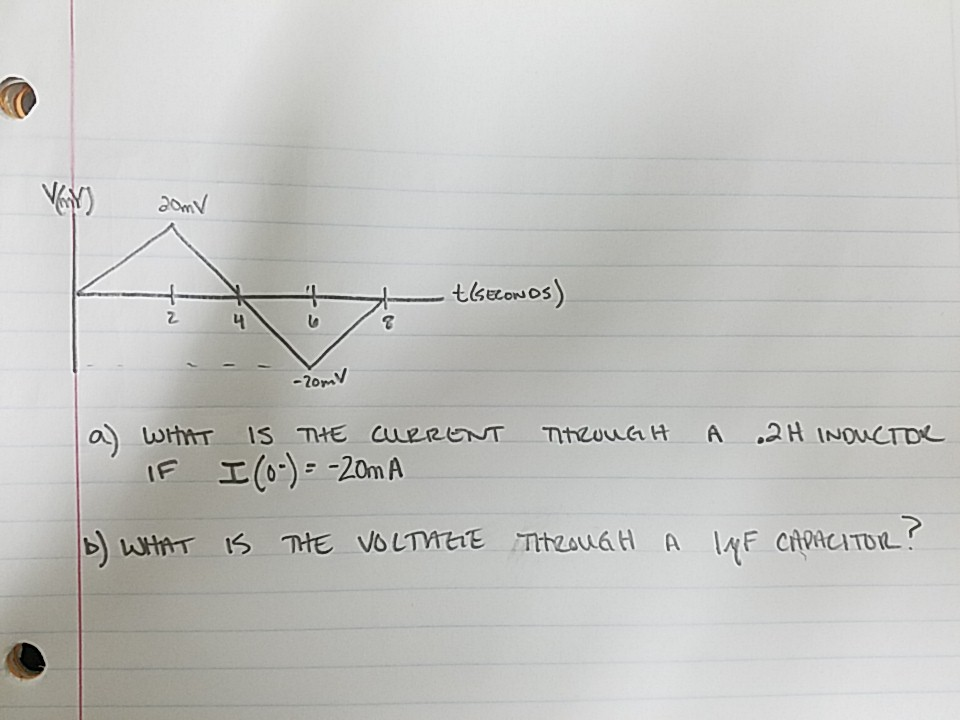 V(mV)
20mV
t(SECONDS)
2
4
6
8
-20mV
a) WHAT IS THE CURRENT THROUGH A .2H INDUCTOR
IF I(0-) = -20mA
b) WHAT IS THE VOLTAGE THROUGH A 1μF CAPACITOR?